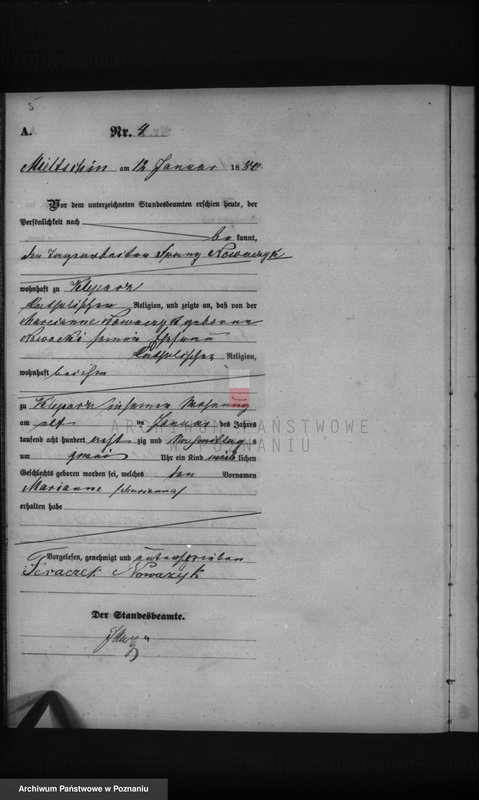 5
A.
Nr. 4
Mieltschin am 12 Januar 1880
Vor dem unterzeichneten Standesbeamten erschien heute, der
Persönlichkeit nach
be kannt,
den Tagearbeiter Franz Nowaczyk
wohnhaft zu
katholischer Religion, und zeigte an, daß von der
Marcianne Nowaczyk geborene
Nowacki seiner Ehefrau
katholischer Religion,
wohnhaft bei ihm
zu in seiner Wohnung
am Januar des Jahres
tausend acht hundert acht zig und Nachmittag s
um Uhr ein Kind weib lichen
Geschlechts geboren worden sei, welches den Vornamen
Marianne
erhalten habe
Vorgelesen, genehmigt und unterschrieben
Nowazyk
Der Standesbeamte.
ARCHIWUM PAŃSTWOWE
W POZNANIU
Archiwum Państwowe w Poznaniu